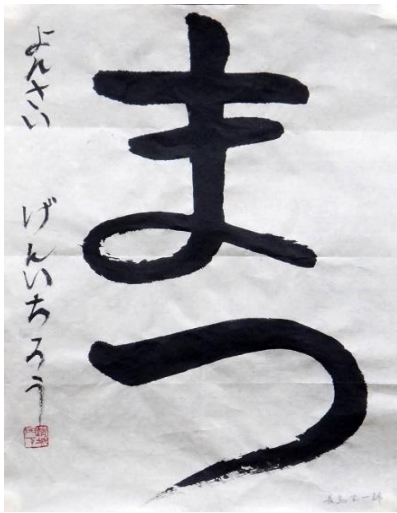 まつ
よんさい げんいちろう